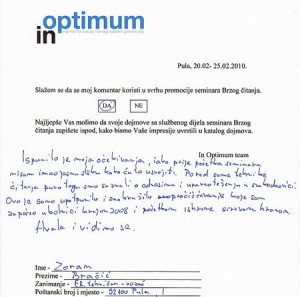 optimum
in
Pula, 20.02- 25.02.2010.
Slažem se da se moj komentar koristi u svrhu promocije seminara Brzog čitanja.
DA NE
Najljepše Vas molimo da svoje dojmove na službenog dijela seminara Brzog
čitanja zapišete ispod, kako bismo Vaše impresije uvrstili u katalog dojmova.
In Optimum team
Ispunilo je moja očekivanja, iako prije početka seminara
nisam imao jasnu sliku kako ću to usvojiti. Pored same tehnike
čitanja puno toga smo saznali o odnosima i
Ovo je samo upotpunilo i koje sam
započeo krajem 2008 i početkom ishrane sirovom hranom.
Hvala i vidimo se.
Ime - Zoran
Prezime -
Zanimanje - El. tehničar
Poštanski broj i mjesto - 52100 Pula